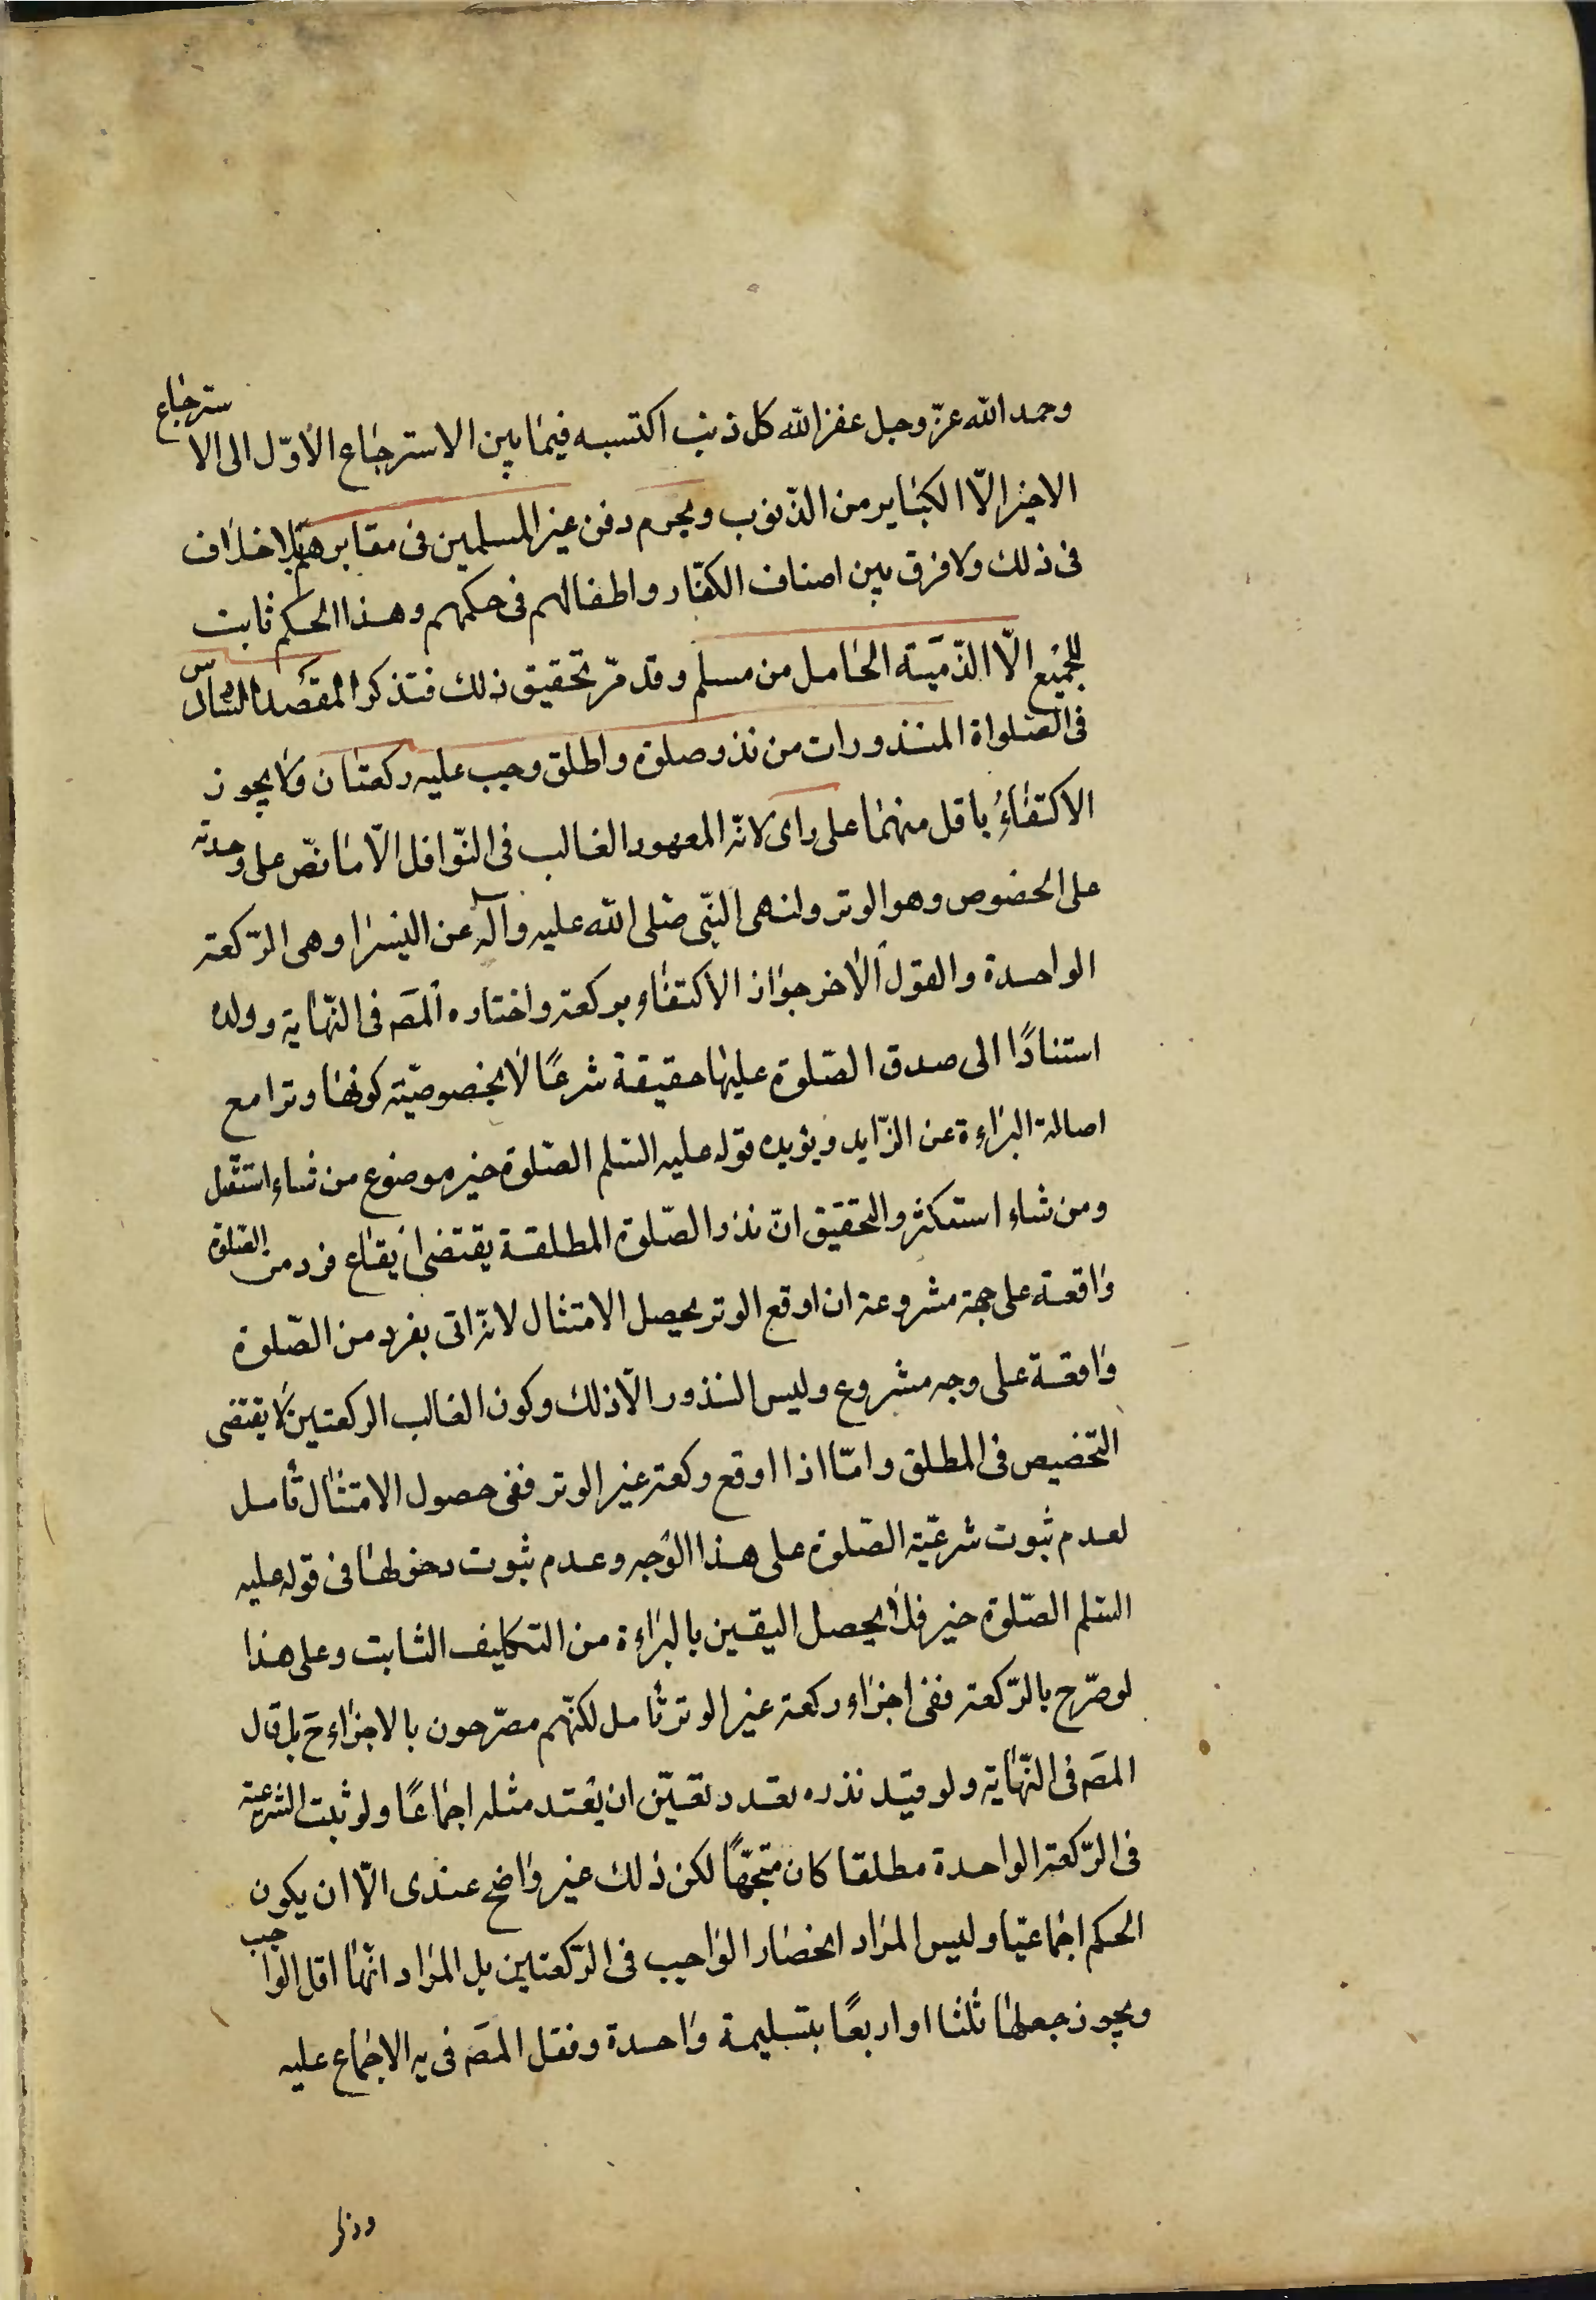 وحمد الله عزّ وجل غفر الله كل ذنب اكتسبه فيما بين الاسترجاع الاوّل الى الاسترجاع
الاخير الّا الكباير من الذّنوب ويحرم دفن غير المسلمين فى مقابرهم بلا خلاف
فى ذلك ولا فرق بين اصناف الكفّار واطفالهم فى حكمهم وهذا الحكم ثابت
للجميع الّا الذّميّة الحامل من مسلم وقد مرّ تحقيق ذلك فتذكر المقصد السّادس
فى الصّلواة المنذورات من نذر صلوة واطلق وجب عليه ركعتان ولا يجوز
الاكتفاء باقل منهما على راى لانّه المعهود الغالب فى النّوافل الّا ما نصّ على وحدته
على الخصوص وهو الوتر ولنهى النّبى صلى الله عليه وآله عن البتيرا وهى الرّكعة
الواحدة والقول الاخر جواز الاكتفاء بركعة واختاره المصَ فى النّهاية وولده
استنادًا الى صدق الصّلوة عليها حقيقة شرعًا لا بخصوصيّة كونها وترا مع
اصالة البراءة عن الزّايد ويؤيده قوله عليه السّلم الصّلوة خير موضوع من شاء استقل
ومن شاء استكثر والتحقيق انّ نذر الصّلوة المطلقة يقتضى ايقاع فرد من الصّلوة
واقعة على جهة مشروعة ان اوقع الوتر يحصل الامتثال لانّه اتى بفرد من الصّلوة
واقعة على وجه مشروع وليس النذور الّا ذلك وكون الغالب الركعتين لا يقتضى
التّخصيص فى المطلق وامّا اذا اوقع ركعة غير الوتر ففى حصول الامتثال تأمل
لعدم ثبوت شرعيّة الصّلوة على هذا الوجه وعدم ثبوت دخولها فى قوله عليه
السّلم الصّلوة خير فلا يحصل اليقين بالبراءة من التكليف الثابت وعلى هذا
لو صرّح بالرّكعة ففى اجزاء ركعة غير الوتر تأمل لكنّهم مصرّحون بالاجزاء حَ بل قال
المصَ فى النّهاية ولو قيّد نذره بعدد تعيّن ان يُعتد مثله اجماعًا ولو ثبت الشرعية
فى الرّكعة الواحدة مطلقا كان متّجهًا لكن ذلك غير واضح عندى الّا ان يكون
الحكم اجماعيّا وليس المراد انحصار الواجب فى الرّكعتين بل المراد انّها اقل الواجب
ويجوز جعلها ثلثا او اربعًا بتسليمة واحدة ونقل المصَ فى يه الاجماع عليه
وذكر